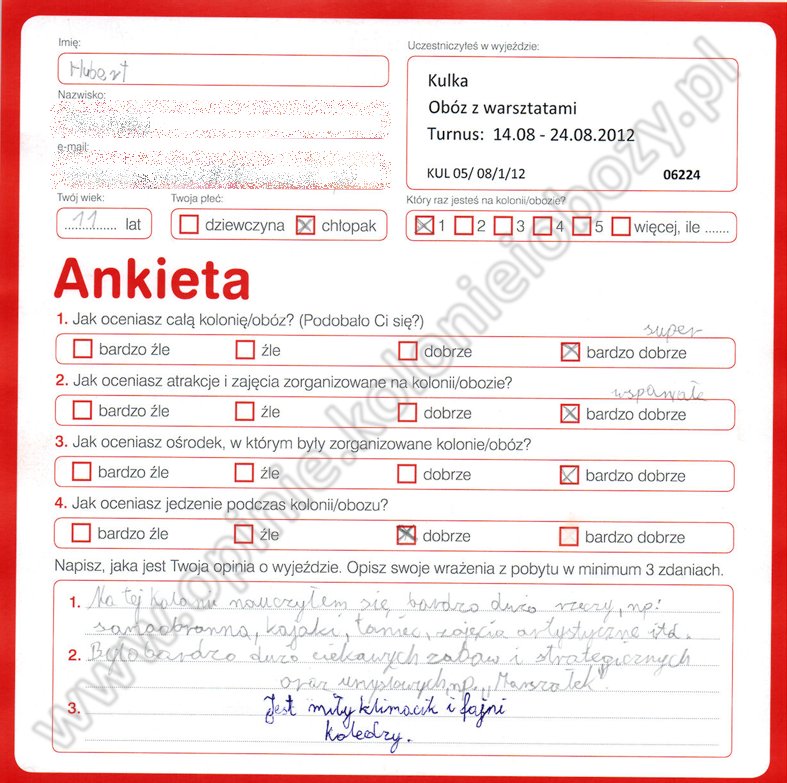 Imię:
Hubert
Uczestniczyłeś w wyjeździe:
Kulka
Obóz z warsztatami
Turnus: 14.08 - 24.08.2012
KUL 05/ 08/1/12 06224
Nazwisko:
e-mail:
Twój wiek:
11 lat
Twoja płeć:
dziewczyna chłopak
Który raz jesteś na kolonii/obozie?
1 2 3 4 5 więcej, ile .......
Ankieta
1. Jak oceniasz całą kolonię/obóz? (Podobało Ci się?)
super
bardzo źle źle dobrze bardzo dobrze
2. Jak oceniasz atrakcje i zajęcia zorganizowane na kolonii/obozie?
wspaniałe
bardzo źle źle dobrze bardzo dobrze
3. Jak oceniasz ośrodek, w którym były zorganizowane kolonie/obóz?
bardzo źle źle dobrze bardzo dobrze
4. Jak oceniasz jedzenie podczas kolonii/obozu?
bardzo źle źle dobrze bardzo dobrze
Napisz, jaka jest Twoja opinia o wyjeździe. Opisz swoje wrażenia z pobytu w minimum 3 zdaniach.
1. Na tej kolonii nauczyłem się bardzo dużo rzeczy, np:
samoobronna, kajaki, taniec, zajęcia artystyczne itd.
2. Było bardzo dużo ciekawych zabaw i strategicznych
oraz umysłowych, np. „Marszałek"
3. Jest miły klimacik i fajni
koledzy.
www.opinie.kolonieiobozy.pl